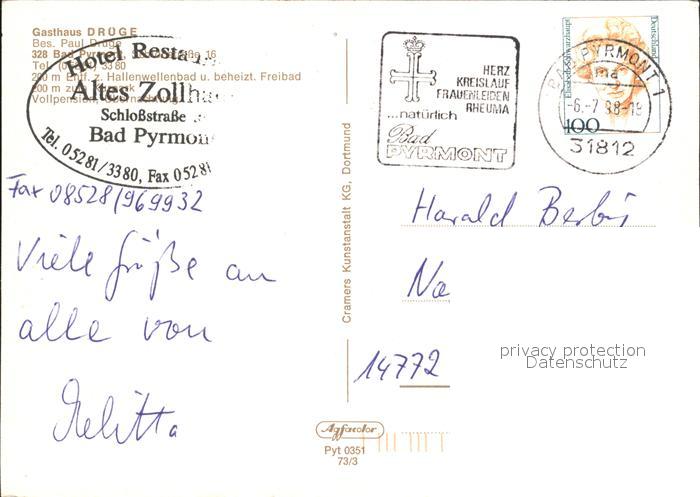 Gasthaus DRÜGE
Bes. Paul Drüge
328 Bad Pyrmont, 16
Tel. 3380
200 m Entf. z. Hallenwellenbad u. beheizt. Freibad
200 m zum
Vollpension, Übernachtung
Hotel Resta
Altes Zollhau
Schloßstraße
Bad Pyrmont
Tel. 05281/3380, Fax 05281
Fax 08528/969932
Viele Grüße an
alle von
Melitta
Cramers Kunstanstalt KG, Dortmund
HERZ
KREISLAUF
FRAUENLEIDEN
RHEUMA
...natürlich
Bad
PYRMONT
BAD PYRMONT 1
ma
-6.-7.98-18
31812
Elisabeth Schwarzhaupt
Deutschland
100
Harald
Na
14772
privacy protection
Datenschutz
Agfacolor
Pyt 0351
73/3